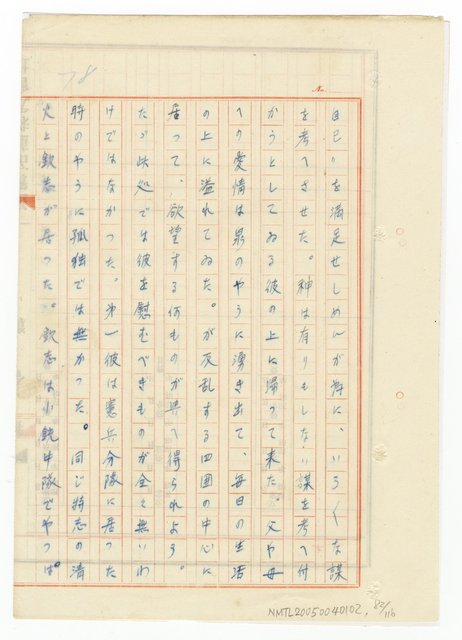 78
No.
自己を満足せしめんが為に、いろ〱な謀
を考へさせた。神は有りもしない謀を考へ付
かうとしてゐる彼の上に帰って来た。父や母
への愛情は泉のやうに湧き出て、毎日の生活
の上に溢れてゐた。が反乱する四囲の中心に
居って、欲望する何ものが与へ得られよう。
たゞ此処では彼を慰むべきものが全く無いわ
けではなかった。第一彼は憲兵分隊に居った
時のやうに孤独では無かった。同じ特志の清
火と欽志が居った。欽志は小銃中隊でやつは。
NMTL20050040102,
82/116